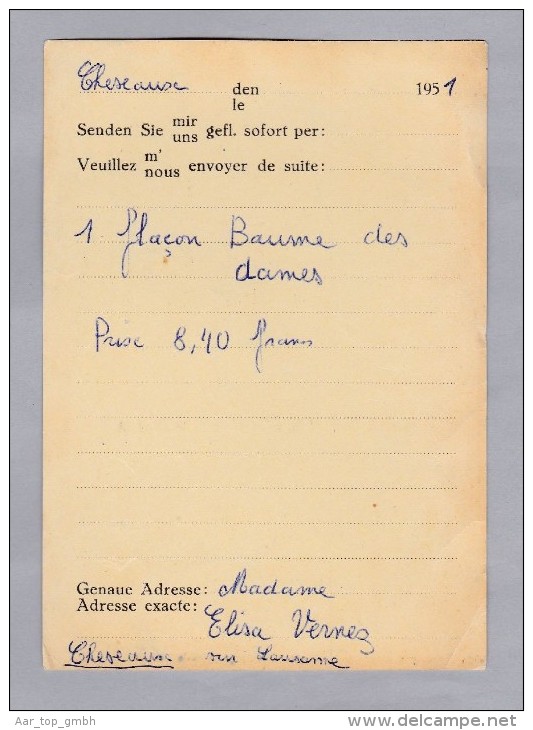 Cheseaux den 1951
le
Senden Sie mir gefl. sofort per:
uns
Veuillez m' envoyer de suite:
nous
1 flaçon Baume des
dames
Prix 8,40 francs
Genaue Adresse: Madame
Adresse exacte: Elisa Vernez
Cheseaux sur Lausanne
Aar_top_gmbh
www.delcampe.net